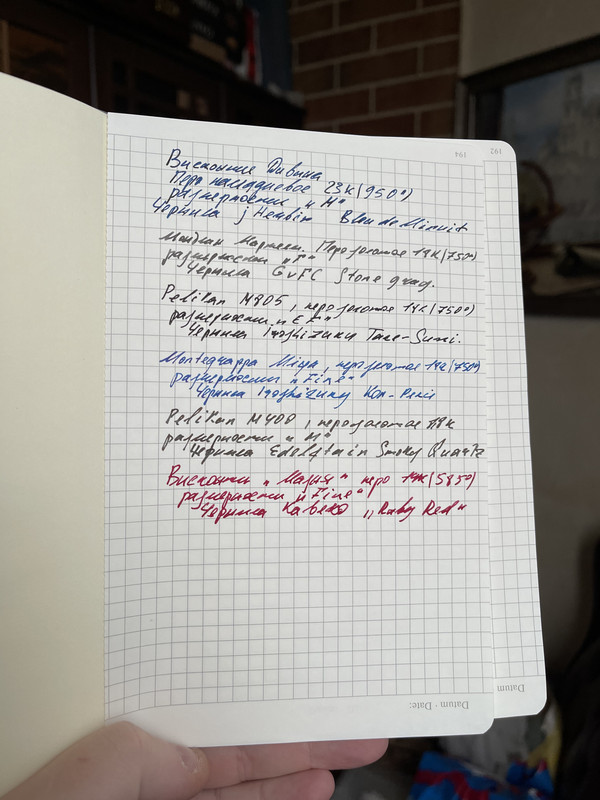 Висконти Дивина
Перо палладиевое 23К (950°)
размерности "М"
Чернила J Herbin Bleu de Minuit
Перо золотое 18К (750°)
размерности "F"
Чернила GvFC Stone grey.
Pelikan M805, перо золотое 18К (750°)
размерности "EF"
Чернила Iroshizuku Take-Sumi.
Montegrappa Miya, перо золотое 18К (750°)
размерности "Fine"
Чернила Iroshizuku Kon-Peki
Pelikan M400, перо золотое
размерности "М"
Чернила Edelstein Smoky Quartz
Висконти "Мария" перо 14К (585°)
размерности "Fine"
Чернила Kaweco "Ruby Red"
Datum · Date:
Datum
194
192